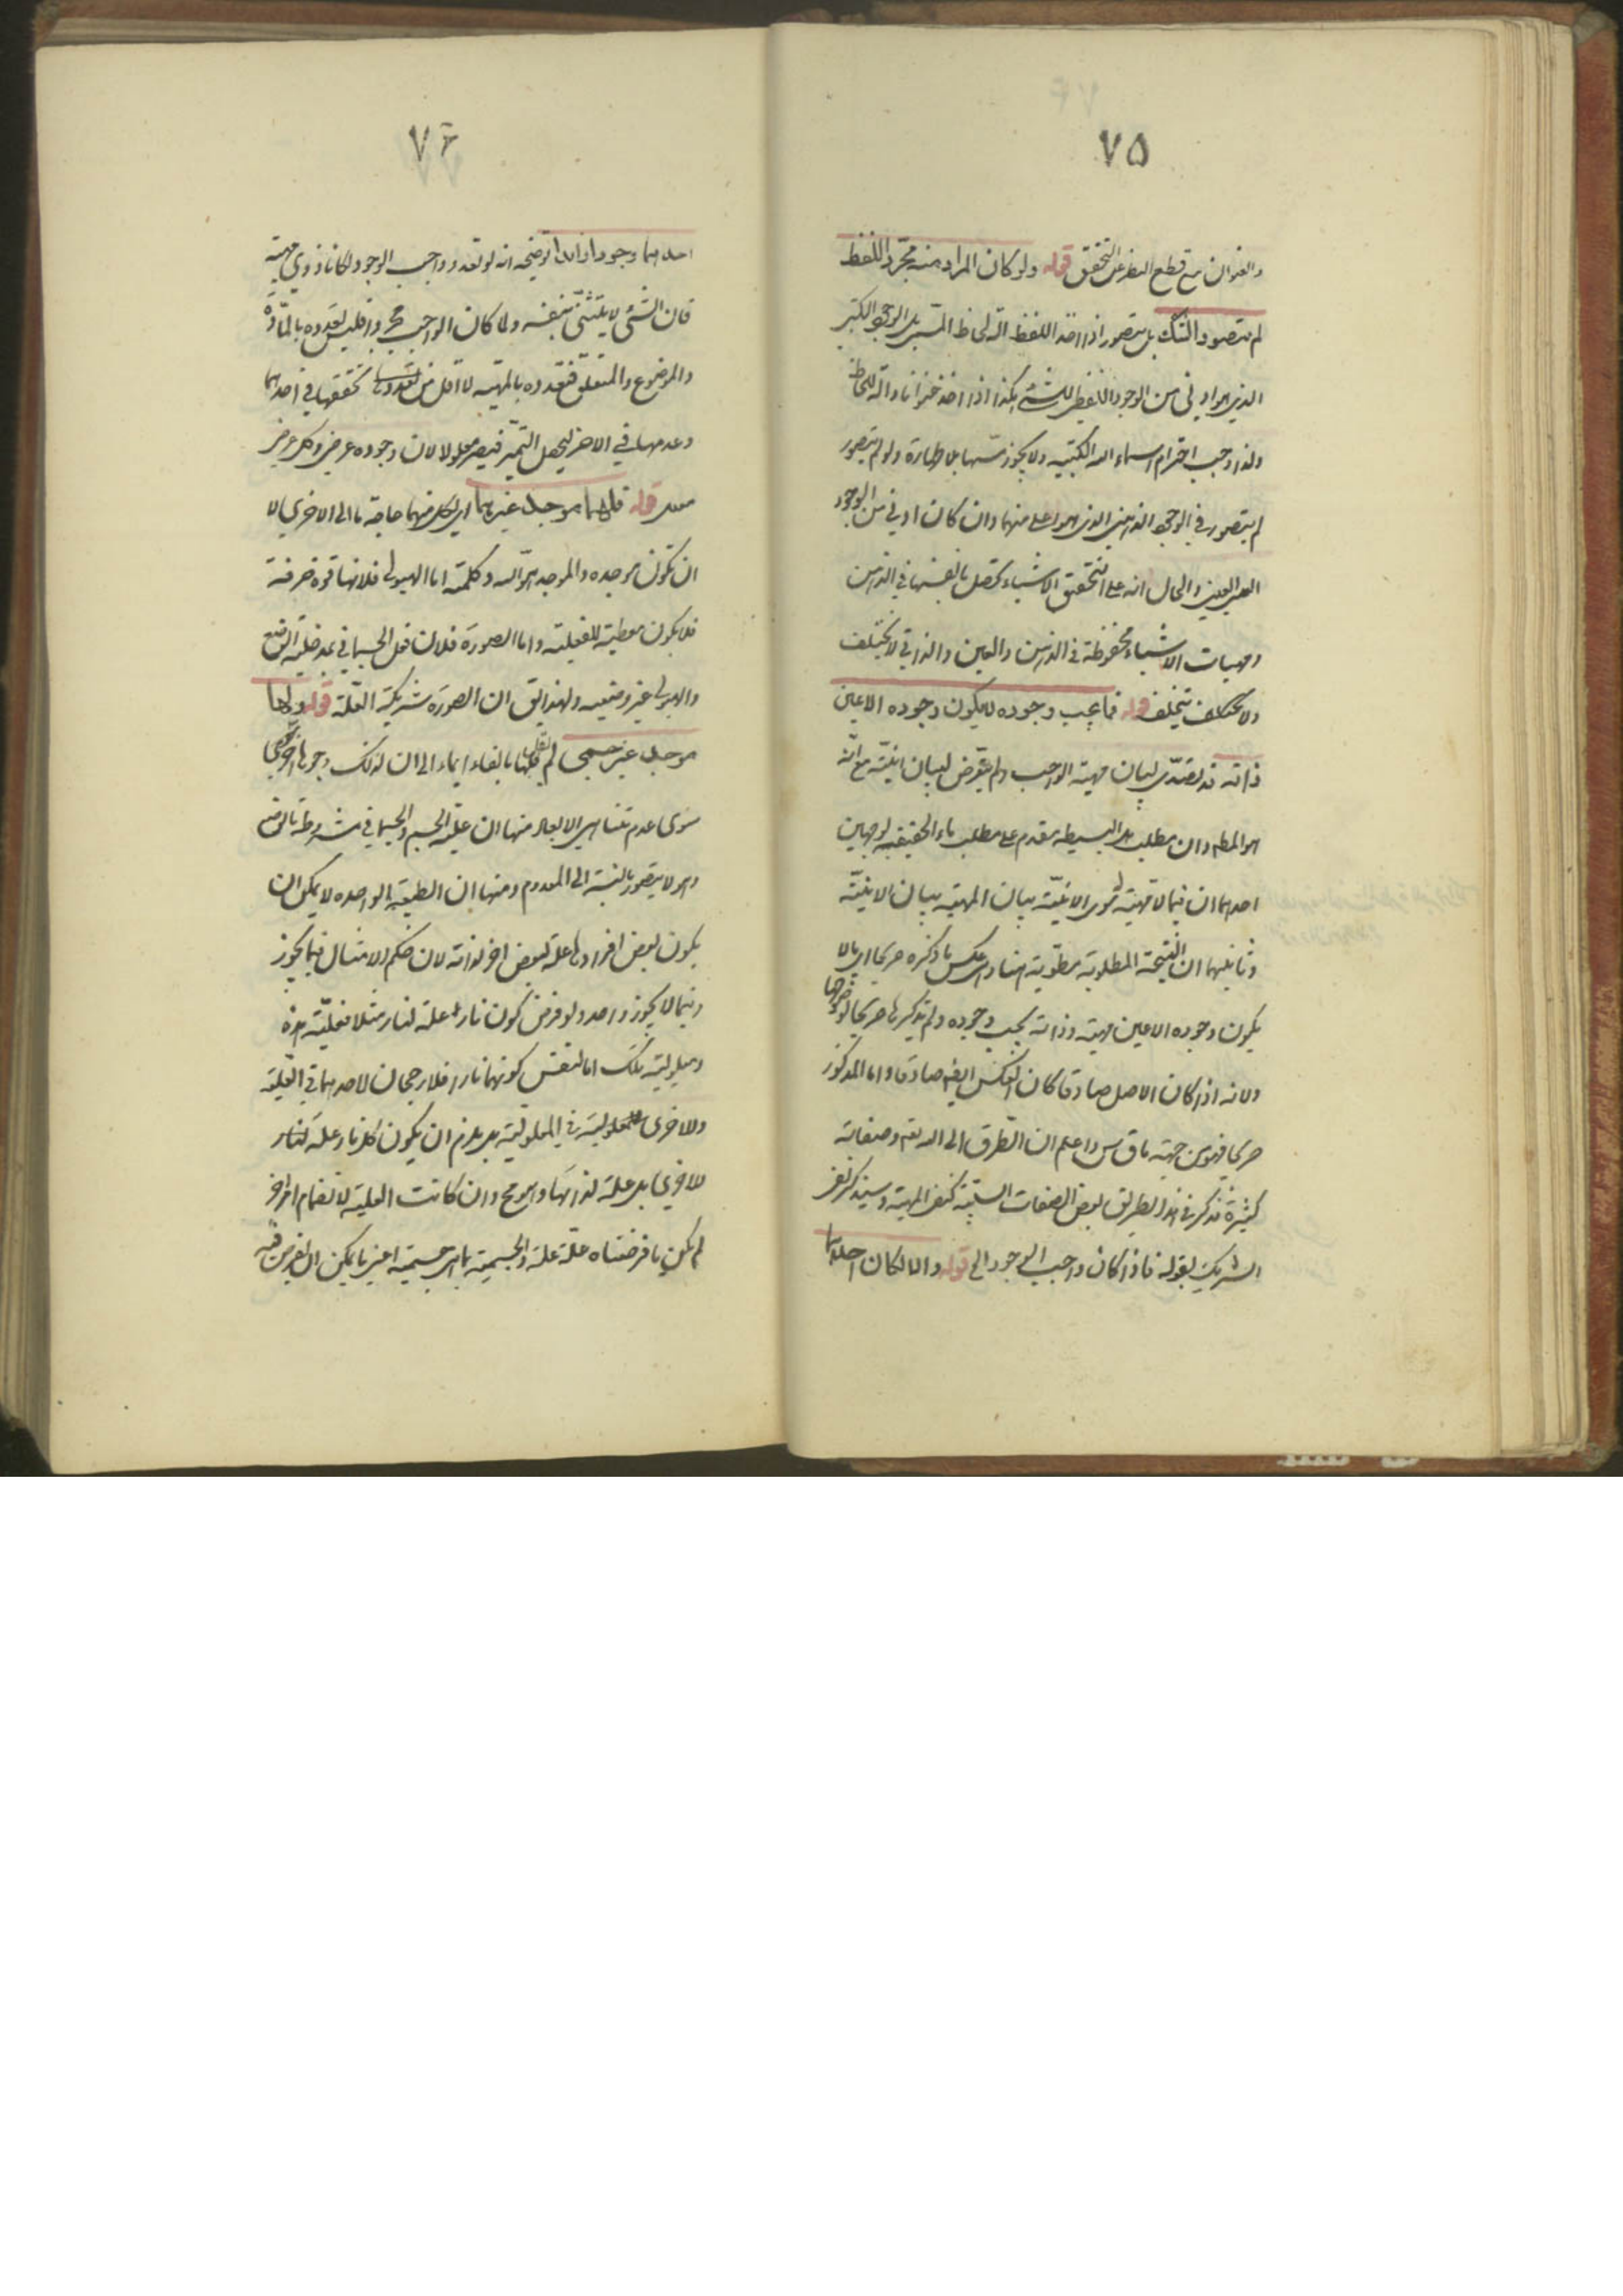 ٧٥
والعنوان مع قطع النظر عن التحقق قوله ولو كان المراد منه مجرد اللفظ
لم يتصور والشك بل يتصور اذا اخذ اللفظ آلة لحاظ المسمى بل الوجود الكتبى
الذى هو ادنى من الوجود اللفظى للشئ هكذا اذا اخذ عنوانا وآلة للحاظ
ولذا وجب احترام اسماء الله الكتبيه ولا يجوز مسها بلا طهارة ولو لم يتصور
لم يتصور فى الوجود الذهنى الذى هو اعلى منهما وان كان ادنى من الوجود
العينى والحال انه على التحقيق الاشياء تحصل بانفسها فى الذهن
ومهيات الاشياء محفوظة فى الذهن والعين والذاتى لا يختلف
ولا يتخلف قوله فما يجب وجوده لا يكون وجوده الا عين
ذاته قد تصدى لبيان مهية الواجب ولم يتعرض لبيان انيته مع انه
هو المطلب وان مطلب هل البسيطه مقدم على مطلب ماء الحقيقيه لوجهين
احدهما ان فيما لا مهية له سوى الانية بيان المهية بيان الانية
وثانيهما ان النتيجة المطلوبة مطوية هنا وهى عكس ما ذكره صريحا اى ما لا
يكون وجوده الا عين مهية وذاته يجب وجوده ولم يذكرها صريحا لوضوحها
ولانه اذا كان الاصل صادقا كان العكس ايضا صادقا واما المذكور
صريحا فهو من جهة ما ق س واعلم ان الطرق الى الله تعم وصفاته
كثيرة فذكر فى هذا الطريق بعض الصفات السلبية كنفى المهية وسيذكر نفى
الشريك بقوله فاذا كان واجب الوجود الى قوله والا لكان احدهما
٧٦
احدهما وجودا زايدا توضيحه انه لو تعدد واجب الوجود لكانا ذوى مهية
فان الشئ لا يتثنى بنفسه ولما كان الواجب مجردا فليس تعدده بالمادة
والموضوع والمتعلق فتعدده بالمهية لا اقل من تعددها تحققها فى احدهما
وعدمها فى الاخر ليحصل التميز فيصير معلولا لان وجوده عرضى وكل عرضى
معلل قوله فلهما موجد غيرهما اى لكل منهما حاجة ما الى الاخرى لا
ان تكون موجده والموجد هو الله وكلمته اما الهيولى فلانها قوة صرفة
فلا يكون معطية للفعلية واما الصورة فلان فعل الجسمانى بمدخلية الوضع
والهيولى غير وضعيه ولهذا يق ان الصورة شريكة العلة قوله ولها
موجد غير جسمى لم يقل فلها بالفاء ايماء الى ان لذلك وجوها اخرى
سوى عدم تناهى الابعاد منها ان علية الجسم والجسمانى مشروطة بالوضع
وهو لا يتصور بالنسبة الى المعدوم ومنها ان الطبيعة الواحده لا يمكن ان
يكون بعض افرادها علة لبعض اخر لذاته لان حكم الامثال فيما يجوز
وفيما لا يجوز واحد ولو فرض كون نار علة لنار مثلا فعلية هذه
ومعلولية تلك اما لنفس كونهما نارا فلا رجحان لاحدهما فى العلية
وللاخرى فى المعلولية بل يلزم ان يكون كل نار علة لنار
لاخرى بل علة لذاتها وهو مح وان كانت العلية لانضمام امر اخر
لم يكن ما فرضناه علة علة والجسمية بما هى جسمية اعنى ما يمكن ان يفرض فيه